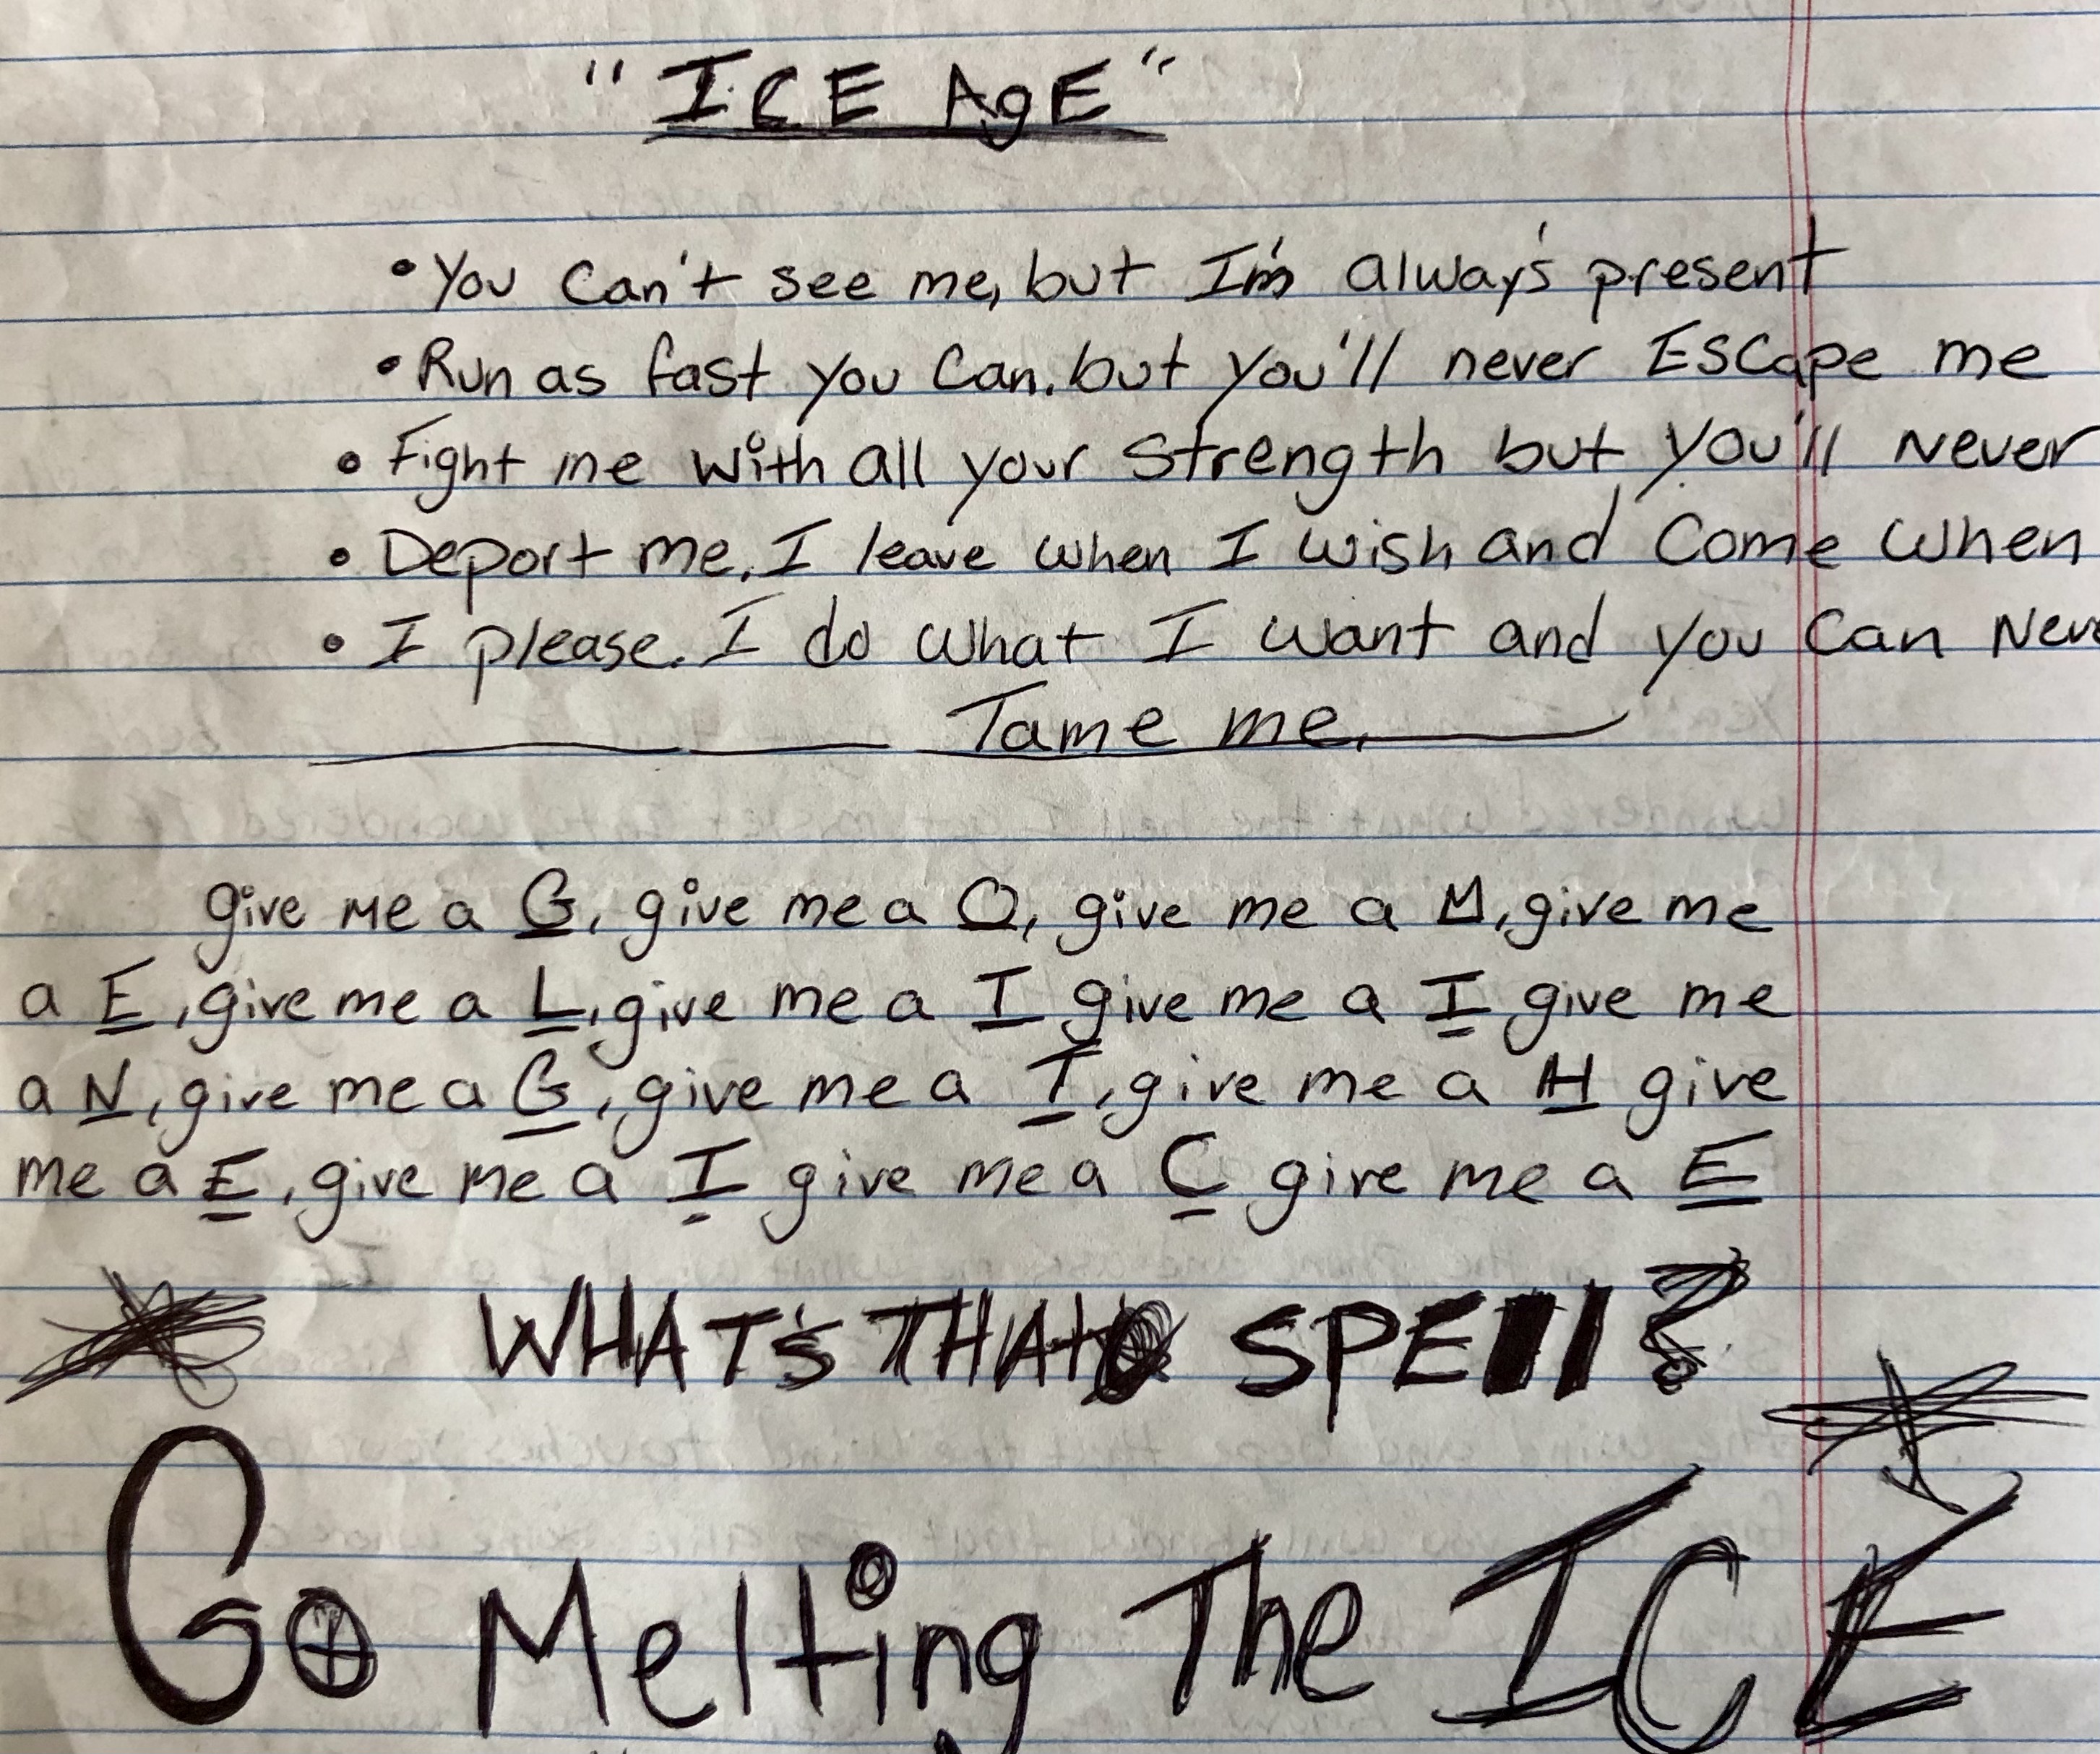 "ICE AgE"
• You Can't see me, but I'm always present
• Run as fast you Can. but you'll never Escape me
• Fight me with all your strength but you'll Never
• Deport me. I leave when I wish and Come when
• I please. I do what I want and you Can Neve
Tame me.
give me a G, give me a O, give me a M, give me
a E, give me a L, give me a I give me a I give me
a N, give me a G, give me a T, give me a H give
me a E, give me a I give me a C give me a E
WHAT'S THAT SPEll?
Go Melting The ICE